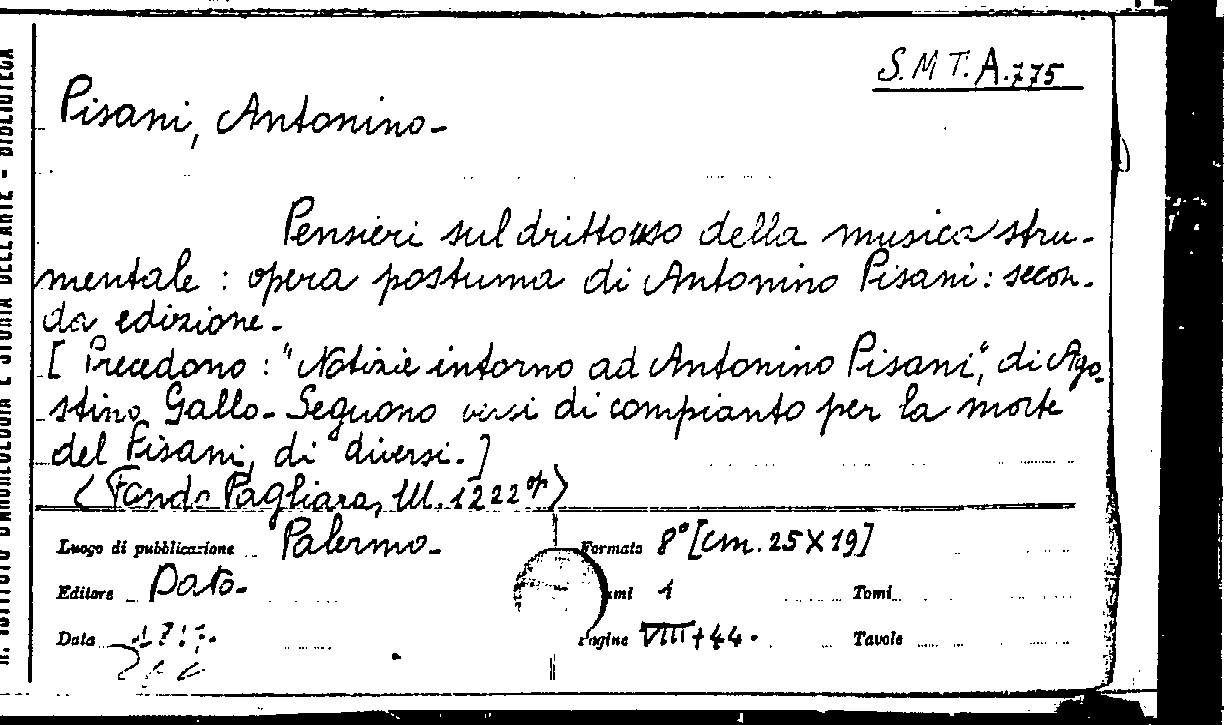 S.M.T. A.775
Pisani, Antonino-
Pensieri sul dritto uso della musica stru-
mentale : opera postuma di Antonino Pisani : secon-
da edizione.-
[ Precedono : "Notizie intorno ad Antonino Pisani", di Ago-
stino Gallo- Seguono versi di compianto per la morte
del Pisani, di diversi.]
(Fondo Pagliara, M. 1222 op)
Luogo di pubblicazione Palermo-
Formato 8° [cm. 25 X 19]
Editore Dato-
1
Tomi
Data
Pagine VIII+44.
Tavole
R. ISTITUTO D'ARCHEOLOGIA E STORIA DELL'ARTE - BIBLIOTECA